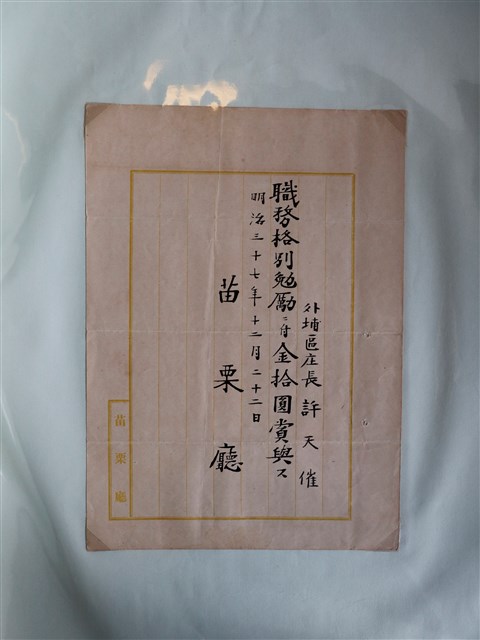 外埔區庄長 許天催
職務格別勉勵ニ付金拾圓賞與ス
明治三十七年十二月二十二日
苗栗廳
苗栗廳